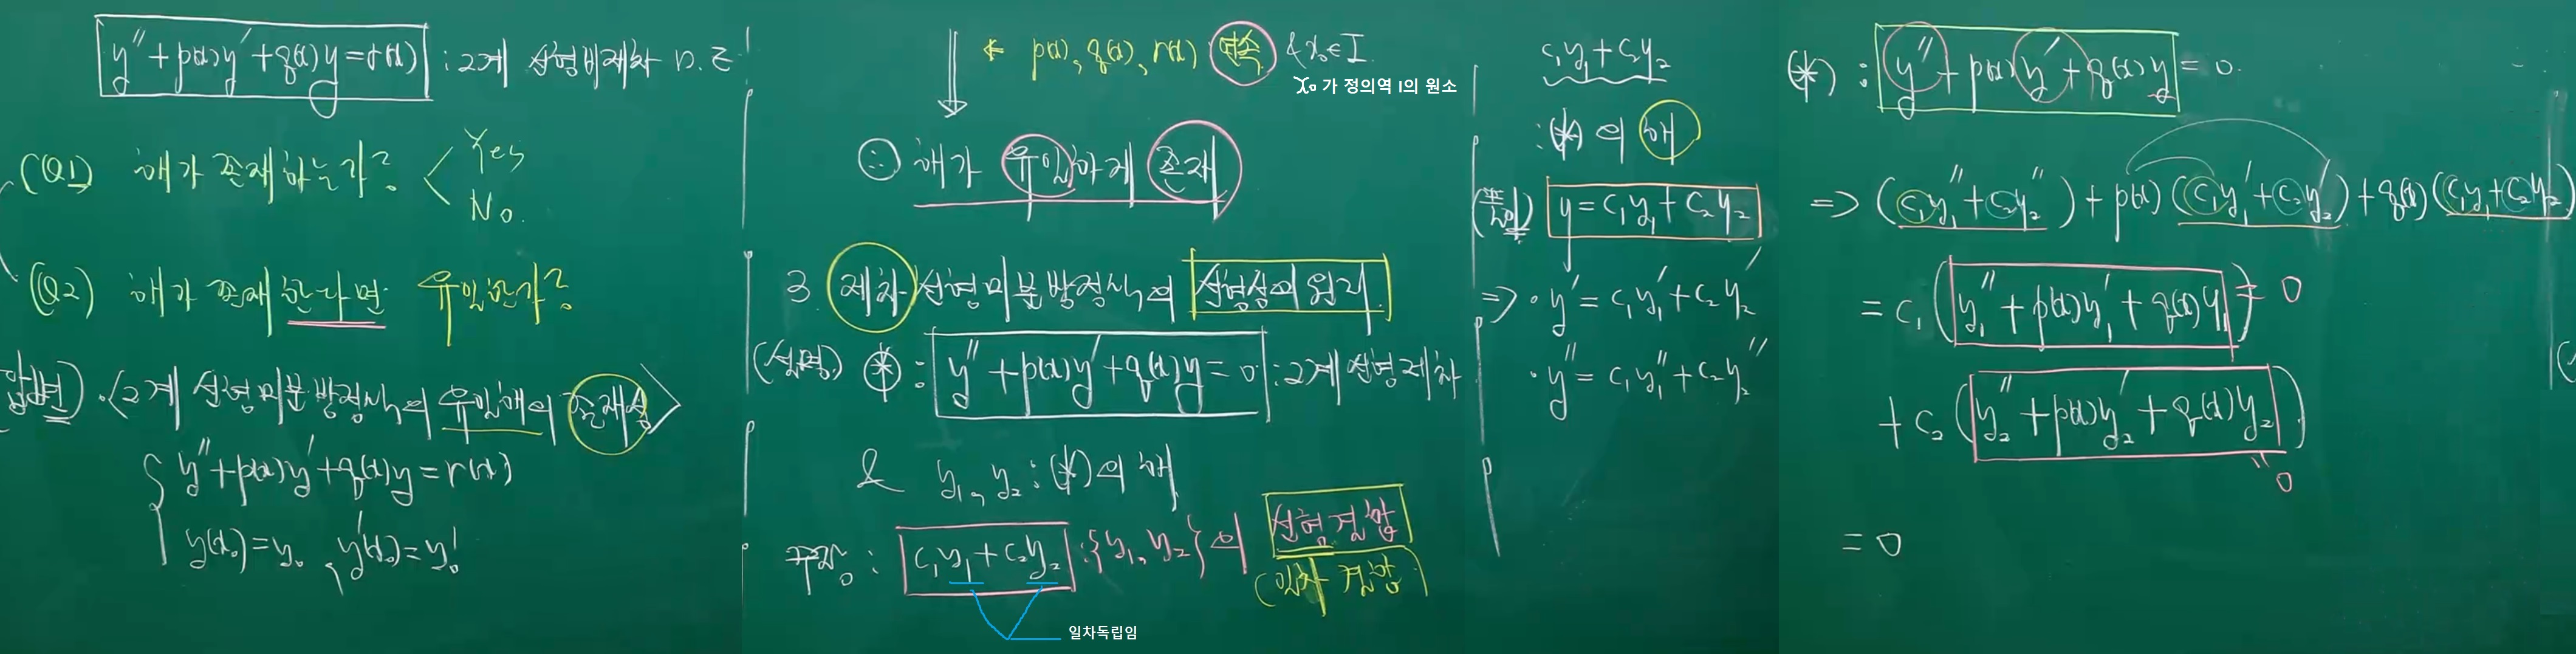 y'' + p(x)y' + q(x)y = r(x) : 2계 선형비제차 D.E
(Q1) 해가 존재하는가? < Yes
No.
(Q2) 해가 존재한다면 유일한가?
답변) · <2계 선형미분방정식의 유일해의 존재성>
{ y'' + p(x)y' + q(x)y = r(x)
y(x₀) = y₀, y'(x₀) = y₀'
⇓ ← p(x), q(x), r(x) 연속 & x₀ ∈ I.
x₀ 가 정의역 I의 원소
∴ 해가 유일하게 존재
3 제차 선형미분방정식의 선형성의 원리
(설명) (*) : y'' + p(x)y' + q(x)y = 0 : 2계 선형제차
& y₁, y₂ : (*)의 해
주장 : c₁y₁ + c₂y₂ : {y₁, y₂}의 선형결합
(일차결합)
일차독립임
c₁y₁ + c₂y₂
: (*)의 해
(풀이) y = c₁y₁ + c₂y₂
⇒ · y' = c₁y₁' + c₂y₂'
· y'' = c₁y₁'' + c₂y₂''
(*) : y'' + p(x)y' + q(x)y = 0.
⇒ (c₁y₁'' + c₂y₂'') + p(x)(c₁y₁' + c₂y₂') + q(x)(c₁y₁ + c₂y₂)
= c₁(y₁'' + p(x)y₁' + q(x)y₁) = 0
+ c₂(y₂'' + p(x)y₂' + q(x)y₂)
" 0
= 0